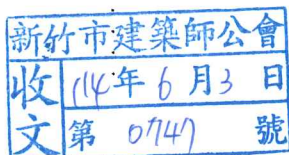 新竹市建築師公會
收文
114年6月3日
第0747號